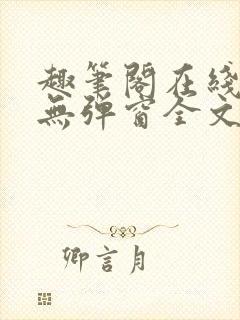 趣筆閣在綫
無彈窗全文
卿言月